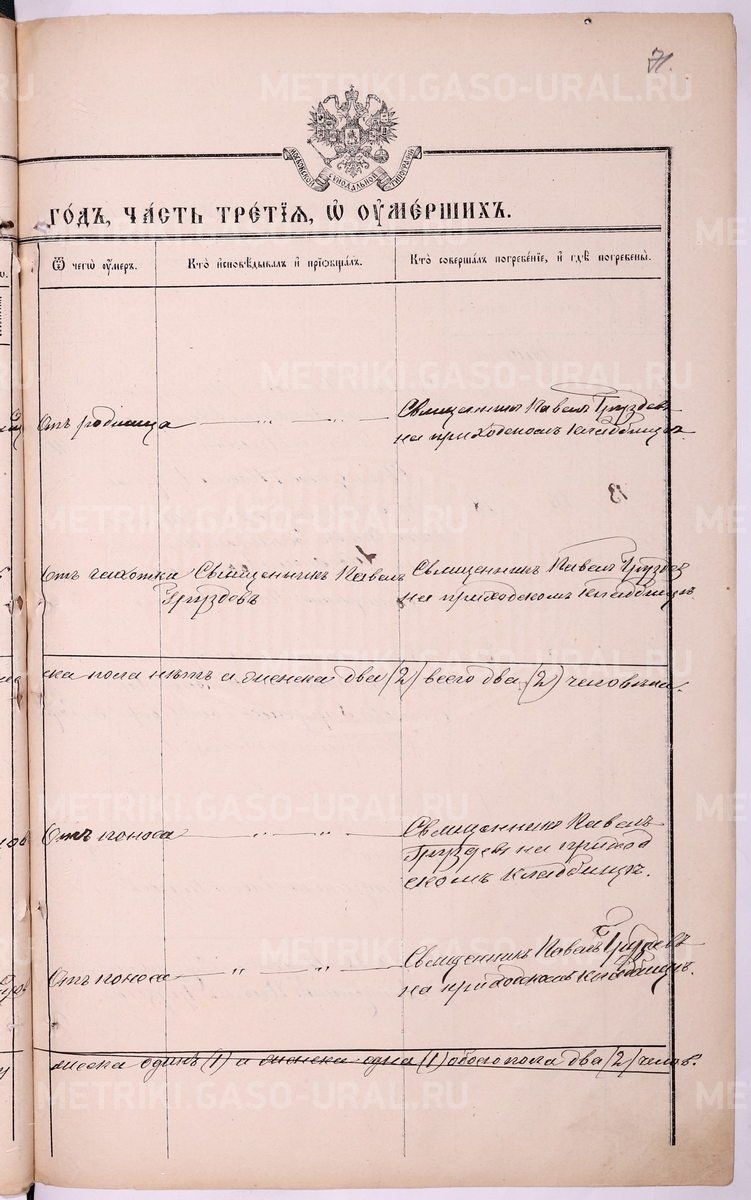 71.
METRIKI.GASO-URAL.RU
МОСКОВСКОЙ СѴНОДАЛЬНОЙ ТИПОГРАФІИ
ГОДЪ, ЧАСТЬ ТРЕТІѦ, Ѡ ОУМЕРШИХЪ.
Ѿ чегѡ оумеръ.
Кто исповѣдывалъ и прїобщалъ.
Кто совершалъ погребенїе, и гдѣ погребены.
Отъ родимца — „ — „ —
Священникъ Павелъ Груздевъ
на приходскомъ кладбищѣ.
13
Отъ чахотки
Священникъ Павелъ
Груздевъ
Священникъ Павелъ Груздевъ
на приходскомъ кладбищѣ
ска пола нѣтъ и женска два (2) всего два (2) человѣка.
Отъ поноса — „ — „ —
Священникъ Павелъ
Груздевъ на приход
скомъ кладбищѣ.
Отъ поноса — „ — „ —
Священникъ Павелъ Груздевъ
на приходскомъ кладбищѣ.
жеска одинъ (1) и женска одна (1) обоего пола два (2) челов.